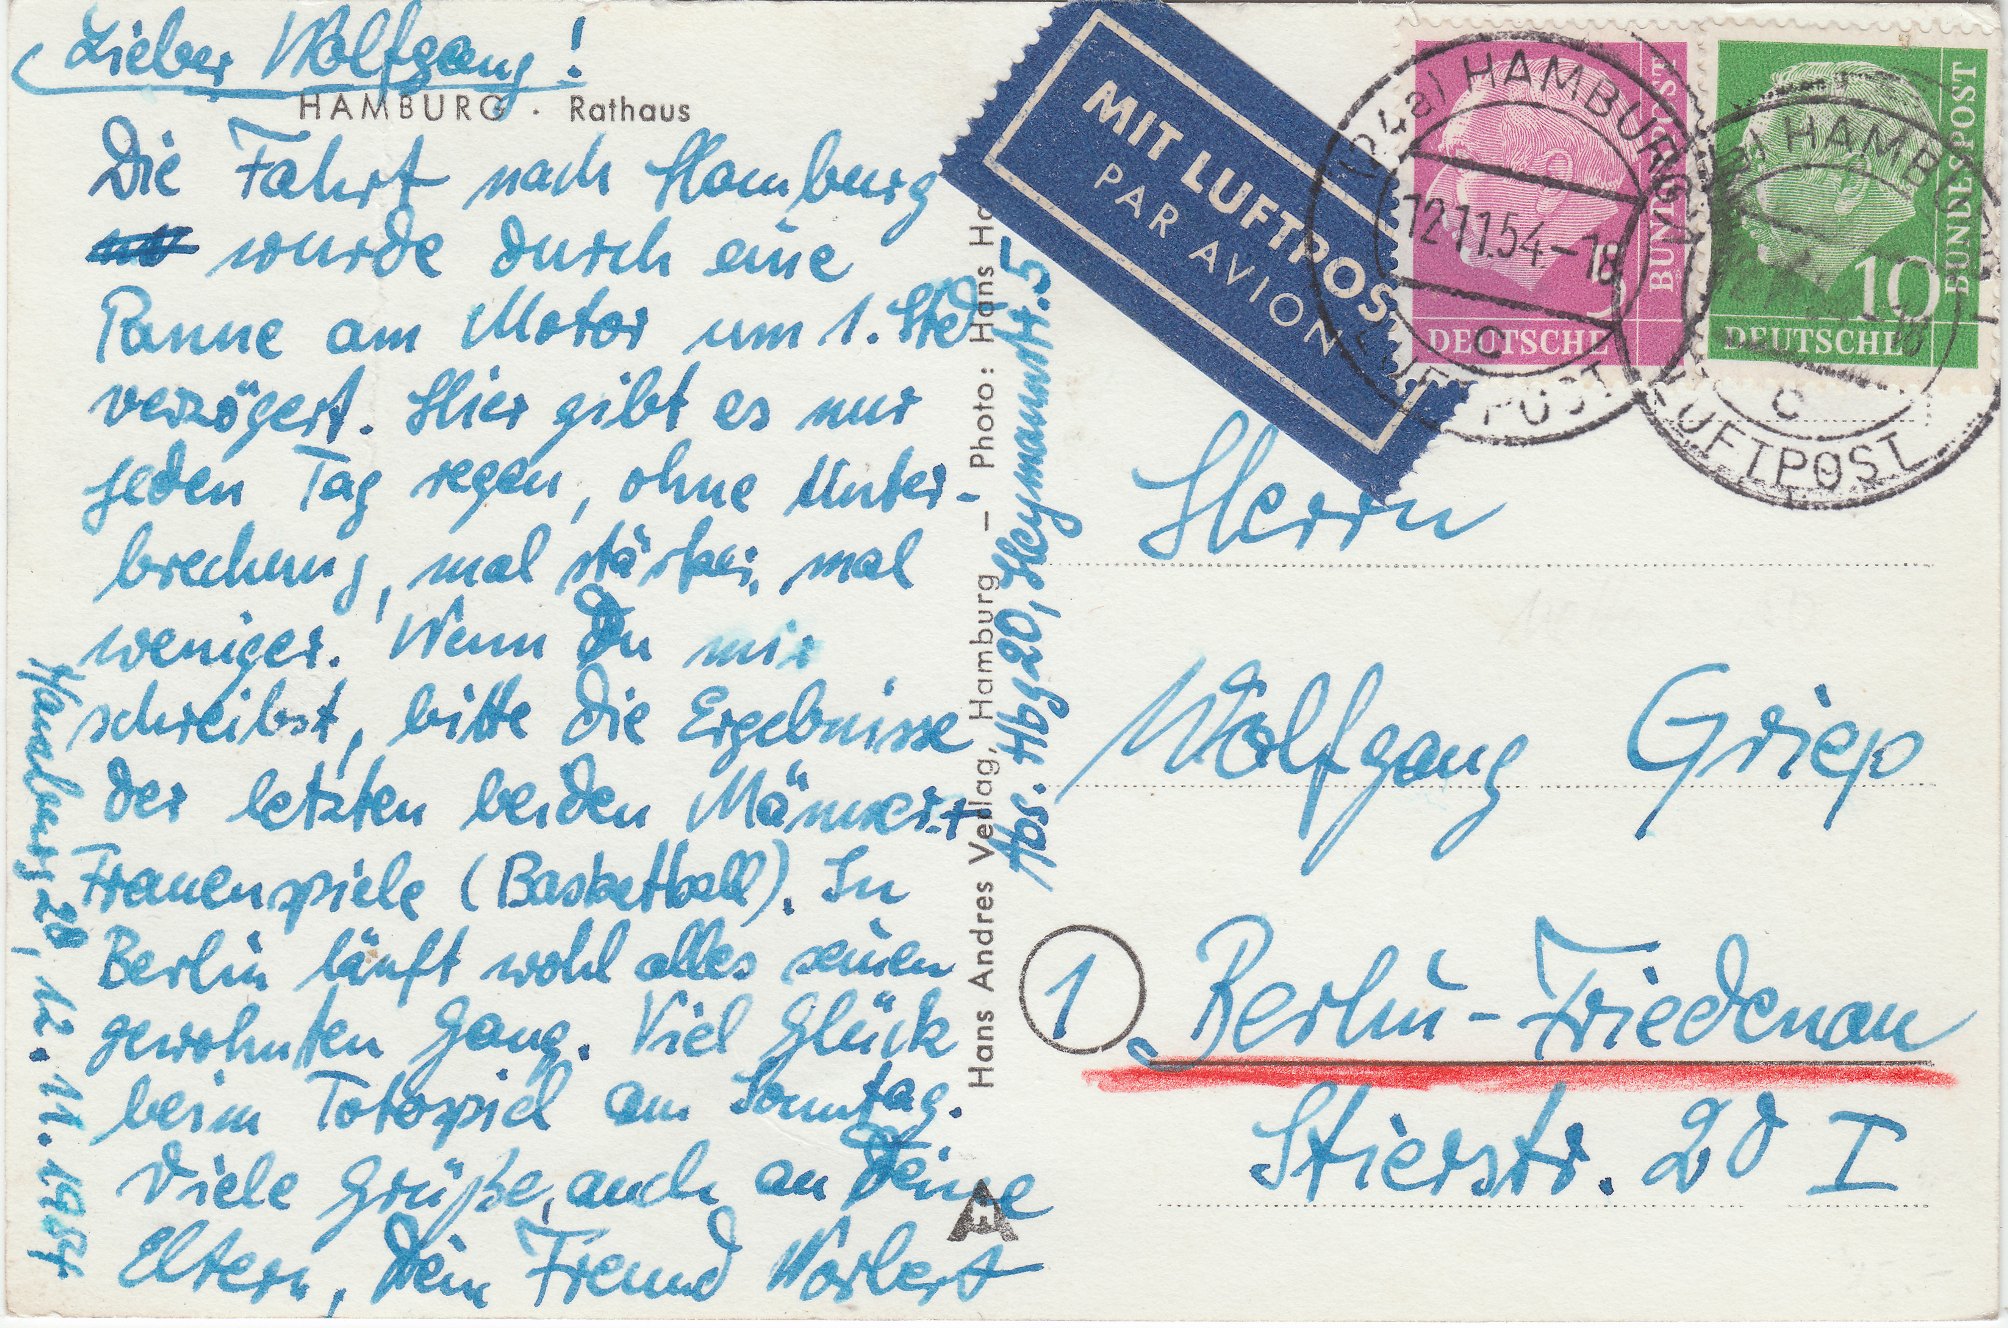 Lieber Wolfgang!
HAMBURG · Rathaus
Die Fahrt nach Hamburg
wurde durch eine
Panne am Motor um 1. Std
verzögert. Hier gibt es nur
jeden Tag regen, ohne Unter-
brechung, mal stärker, mal
weniger. Wenn Du mir
schreibst, bitte die Ergebnisse
der letzten beiden Männer.+
Frauenspiele (Basketball). In
Berlin läuft wohl alles seinen
gewohnten Gang. Viel Glück
beim Totospiel am Sonntag.
Viele Grüße, auch an Deine
Eltern, Dein Freund Norbert
Hamburg 20, 12.11.1954
Hans Andres Verlag, Hamburg – Photo: Hans
Abs. Hbg 20, Heymannstr. 5
MIT LUFTPOS
PAR AVION
DEUTSCHE
BUNDESPOST
10
DEUTSCHE
BUNDESPOST
(24a) HAMBURG
12.11.54–18
c
LUFTPOST
HAMBURG
c
LUFTPOST
Herrn
Wolfgang Griep
1 Berlin-Friedenau
Stierstr. 20 I